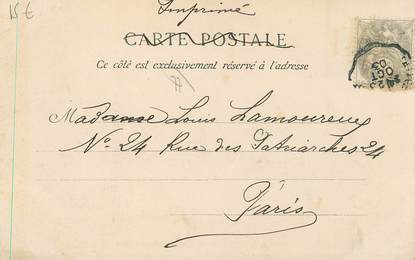 15 €
Imprimé
CARTE POSTALE
Ce côté est exclusivement réservé à l'adresse
77
Madame Louis Lamoureux
No. 24 Rue des Patriarches 24
Paris
OCT
03